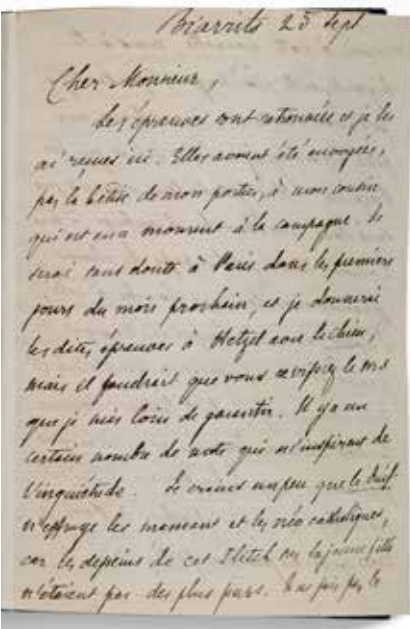 Biarritz 25 Sept
Cher Monsieur,
Les épreuves sont retrouvées et je les
ai reçues ici. Elles avaient été envoyées,
par la bêtise de mon portier, à mon cousin
qui est en ce moment à la campagne. Je
serai sans doute à Paris dans les premiers
jours du mois prochain, et je donnerai
les dites épreuves à Hetzel avec le chien,
mais il faudrait que vous revissiez le ms
que je suis loin de garantir. Il y a un
certain nombre de mots qui m'inspirent de
l'inquiétude. Je crains un peu que le Juif
n'effraye les mamans et les néo catholiques,
car les desseins de cet Itzitch sur la jeune fille
n'étaient pas des plus purs. Il ne